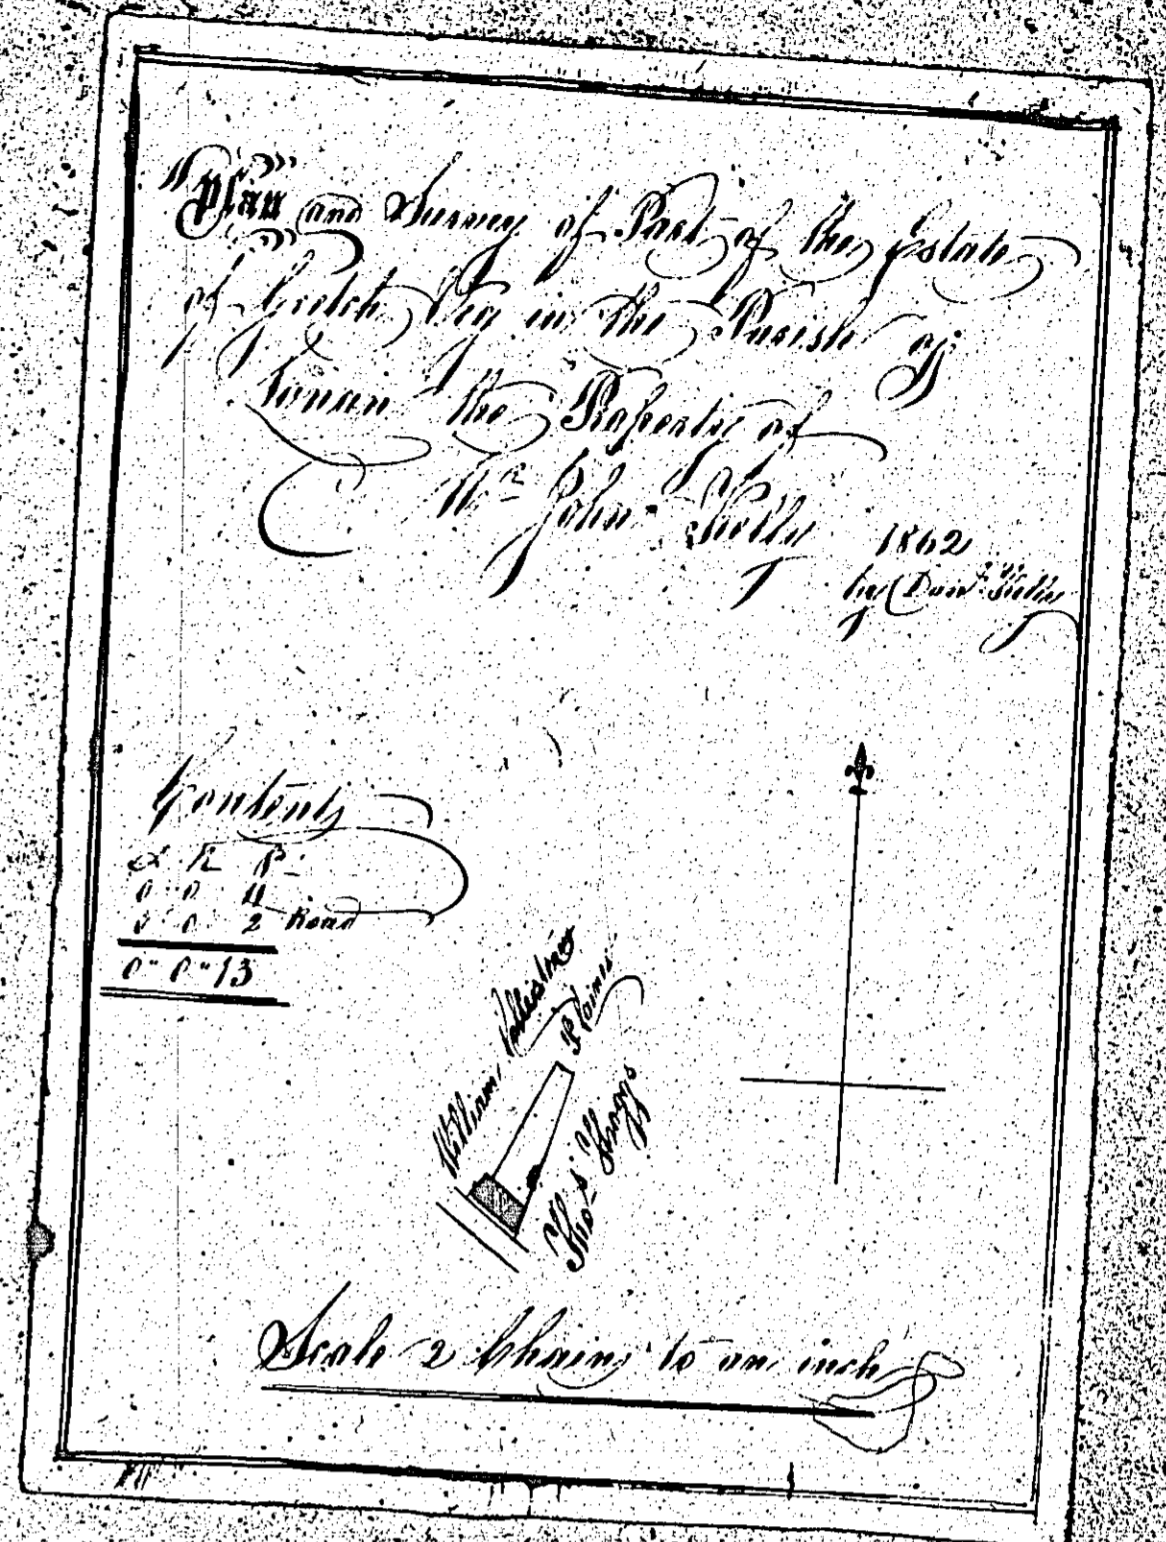 Plan and Survey of Part of the Estate
of Gretch Veg in the Parish of
Lonan the Property of
Mr John Kelly
1862
by Danl
Contents
A R P
0 0 11
0 0 2 Road
0" 0" 13
William
Thos
Scale 2 Chains to an inch